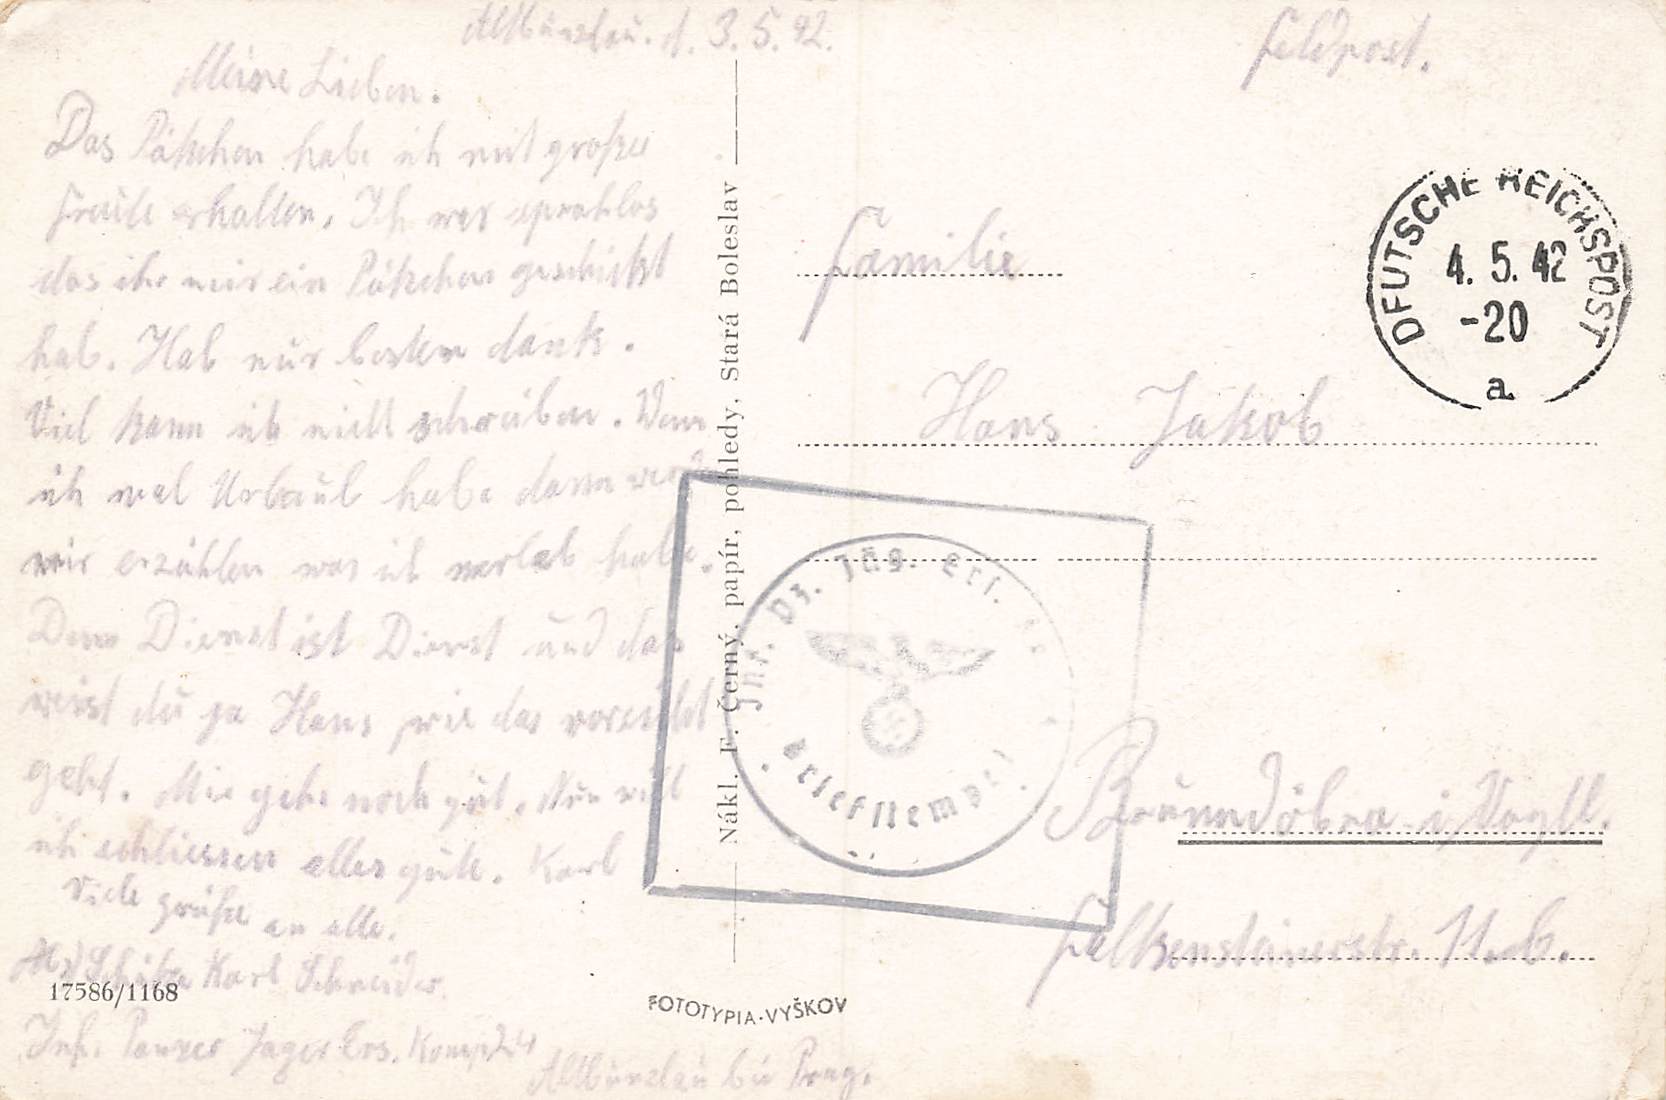 Altbunzlau. d. 3.5.42.
Meine Lieben.
Das Päkchen habe ich mit großer
Freude erhalten. Ich war sprachlos
das ihr mir ein Päkchen geschickt
hab. Hab nur besten dank.
Viel kann ich nicht schreiben. Wenn
ich mal Urlaub habe dann werd
wir erzählen was ich verleb habe.
Denn Dienst ist Dienst und das
weist du ja Hans wie das
geht. Mir gehs noch gut. Nun will
ich schliessen alles gute. Karl
Viele grüße an alle.
Karl Schneider.
Inf. Panzer Jäger Ers. Komp.
Altbunzlau bei Prag.
17586/1168
FOTOTYPIA-VYŠKOV
Nákl. F. Černý, papír, pohledy, Stará Boleslav
Feldpost.
DEUTSCHE REICHSPOST
4.5.42
-20
a
Familie
Hans Jakob
Inf. Pz. Jäg. Ers.
Briefstempel
Brunndöbra i. Vogtl.
Falkensteinerstr. 11.b.